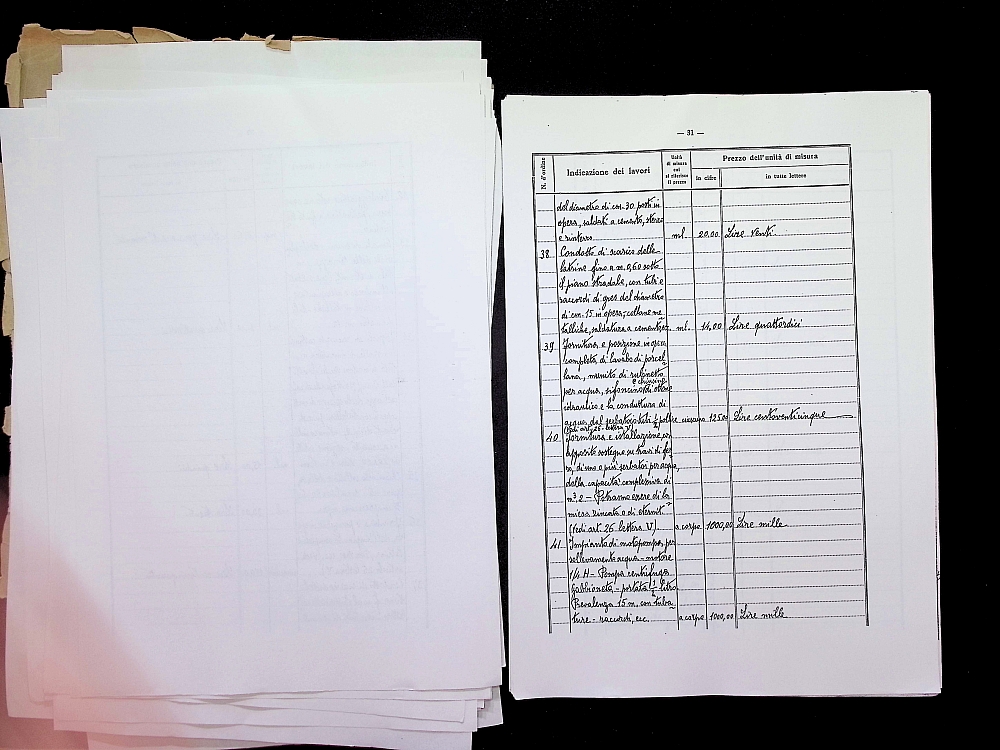 — 31 —
N. d'ordine
Indicazione dei lavori
Unità di misura cui si riferisce il prezzo
Prezzo dell'unità di misura
in cifre
in tutte lettere
del diametro di cm. 30 posti in
opera, saldati a cemento, sterro
e rinterro ml. 20,00 Lire venti
38 Condotto di scarico delle
latrine fino a m. 0,60 sotto
il piano stradale, con tubi e
raccordi di gres del diametro
di cm. 15 in opera, collane me
talliche, saldatura a cemento, ml. 14,00 Lire quattordici
39 Fornitura e posizione in opera
completa, di lavabo di porcel
lana, munito di rubinetto
per acqua, sifoncino di ottone
e chiusino
idraulico e la conduttura di
acqua dal serbatoio tubi ½ pollice ciascuno 125,00 Lire centoventicinque
(Vedi art. 26 lettera V)
40 Fornitura e istallazione, con
apposito sostegno su travi di fer
ro, di uno o più serbatoi per acqua,
della capacità complessiva di
m³ 2 — Potranno essere di la
miera zincata o di eternit
(Vedi art. 26 lettera V). a corpo 1000,00 Lire mille
41 Impianto di motopompa, per
sollevamento acqua - motore
1/4 H - Pompa centrifuga
Gabbioneta - portata ½ litro
Prevalenza 15 m. con tuba
ture - raccordi, ecc. a corpo 1000,00 Lire mille